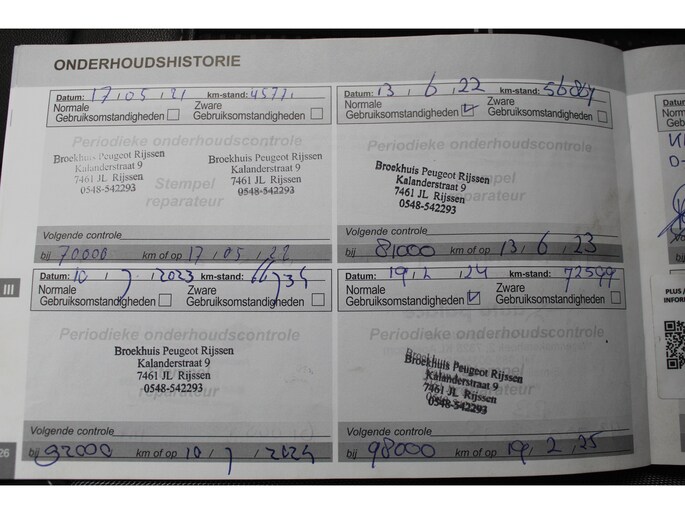 ONDERHOUDSHISTORIE
Datum: 17, 05, 21 km-stand:
Normale Gebruiksomstandigheden Zware Gebruiksomstandigheden
Periodieke onderhoudscontrole
Broekhuis Peugeot Rijssen
Kalanderstraat 9
7461 JL Rijssen
0548-542293
Broekhuis Peugeot Rijssen
Kalanderstraat 9
7461 JL Rijssen
0548-542293
Stempel
reparateur
Volgende controle
bij 70000 km of op 17, 05, 22
Datum: 13, 6, 22 km-stand:
Normale Gebruiksomstandigheden Zware Gebruiksomstandigheden
Periodieke onderhoudscontrole
Broekhuis Peugeot Rijssen
Kalanderstraat 9
7461 JL Rijssen
0548-542293
reparateur
Volgende controle
bij 81000 km of op 13, 6, 23
III
Datum: 10, 7, 2023 km-stand:
Normale Gebruiksomstandigheden Zware Gebruiksomstandigheden
Periodieke onderhoudscontrole
Broekhuis Peugeot Rijssen
Kalanderstraat 9
7461 JL Rijssen
0548-542293
reparateur
Volgende controle
bij 92000 km of op 10, 7, 2024
Datum: 19, 2, 24 km-stand: 72599
Normale Gebruiksomstandigheden Zware Gebruiksomstandigheden
Periodieke onderhoudscontrole
Broekhuis Peugeot Rijssen
Kalanderstraat 9
7461 JL Rijssen
0548-542293
reparateur
Volgende controle
bij 98000 km of op 19, 2, 25
26
Datum
Norma
Gebru
PLUS /
INFOR